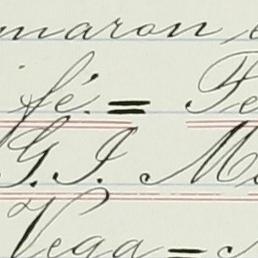 maron
fé. = Pe
G. I. M
Vega =